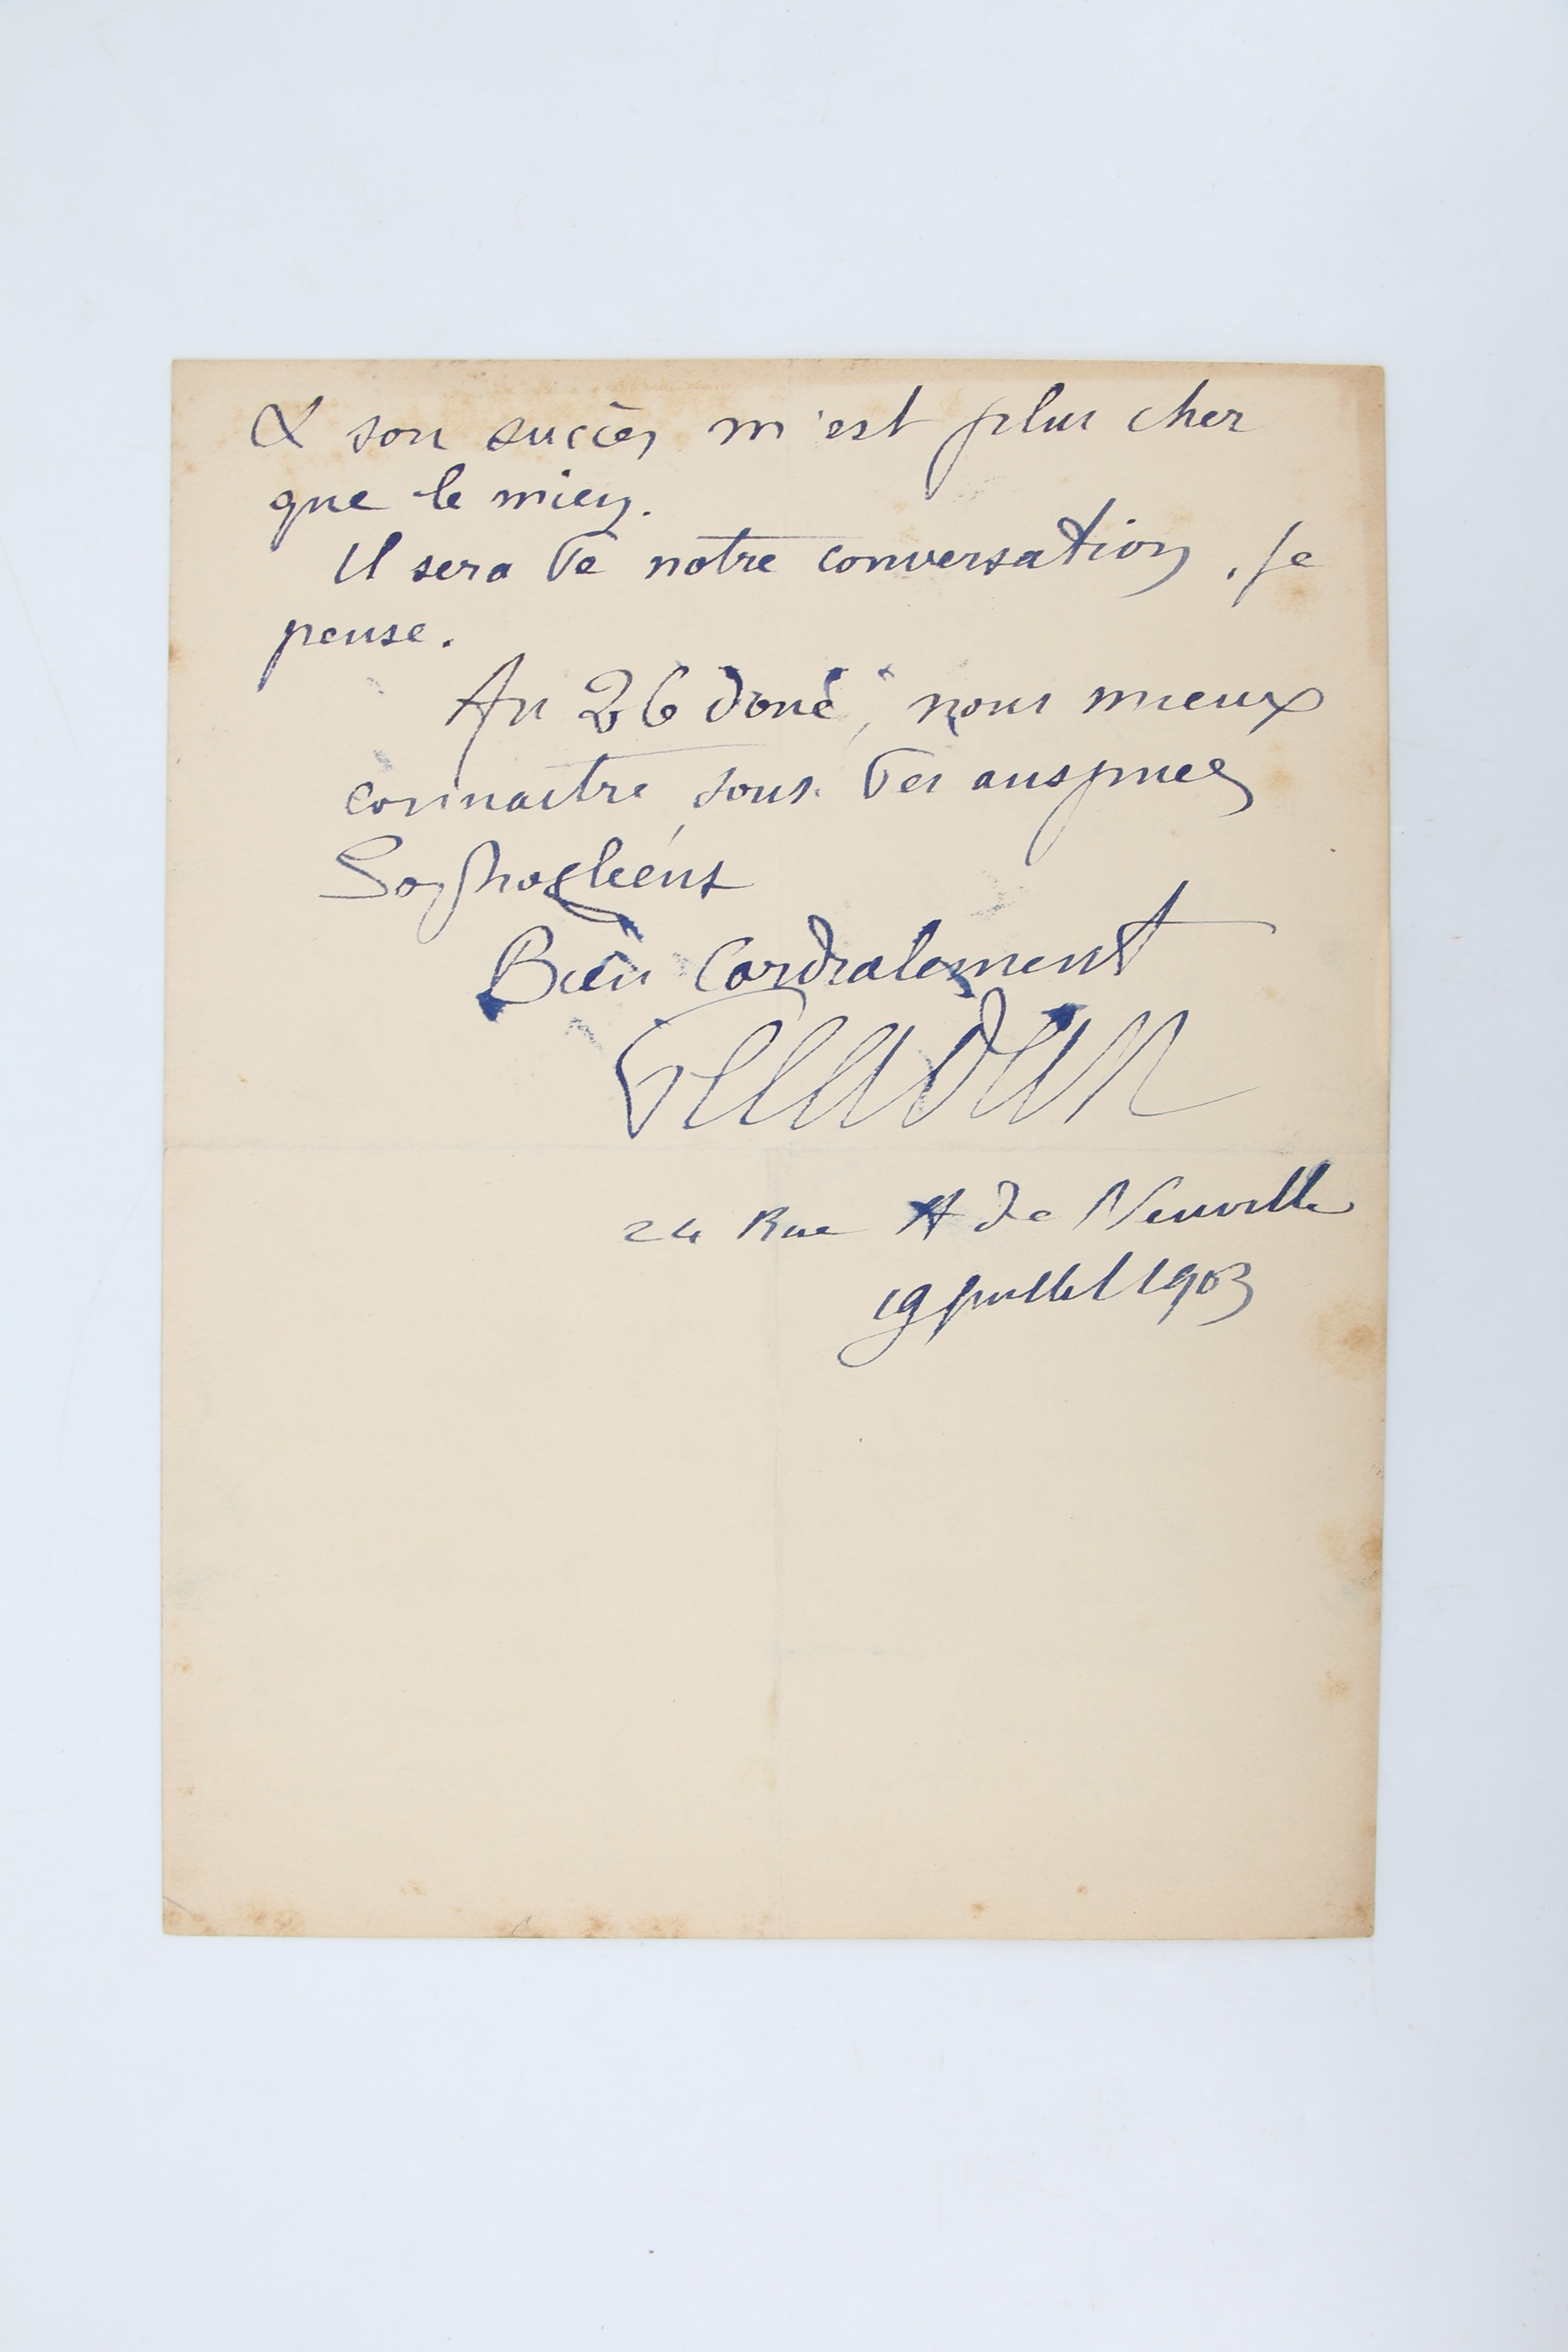 & son succès m'est plus cher
que le mien.
Il sera de notre conversation, je
pense.
Au 26 donc, nous mieux
connaitre, sous des auspices
Sophocléens
Bien Cordialement
Peladan
24 Rue A de Neuville
19 juillet 1903